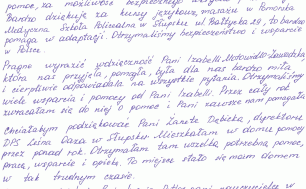 pomoc, za możliwość bezpiecznego
Bardzo dziękuje za kursy językowe, masażu w Pomorska
Medyczna Szkoła Policealna w Słupsku ul Bałtycka 29, to bardzo
pomaga w adaptacji. Otrzymaliśmy bezpieczeństwo i wsparcie
w Polsce
Pragnę wyrazić wdzięczność Pani Izabelli
która nas przyjęła, pomogła, była dla nas bardzo miła
i cierpliwie odpowiadała na wszystkie pytania. Otrzymaliśmy
wiele wsparcia i pomocy od Pani Izabelli. Przez cały rok
zwracałam się do niej o pomoc i Pani zawsze nam pomagała
Chciałabym podziękować Pani Żanete Dębicka, dyrektorce
DPS Leśna Oaza w Słupsku. Mieszkałam w domu pomocy
przez ponad rok. Otrzymałam tam wszelką potrzebną pomoc,
pracę, wsparcie i opiekę. To miejsce stało się moim domem
w tak trudnym czasie.